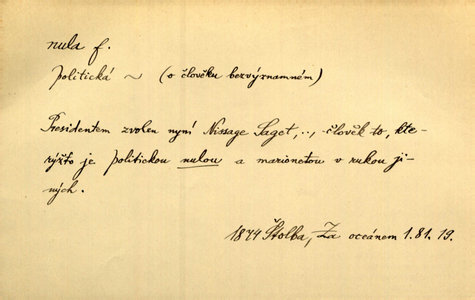 nula f.
politická ~ (o člověku bezvýznamném)
Presidentem zvolen nyní Nissage Saget, .., člověk to, kte-
rýžto je politickou nulou a marionetou v rukou ji-
ných.
1874 Štolba, Za oceánem 1.81.19.